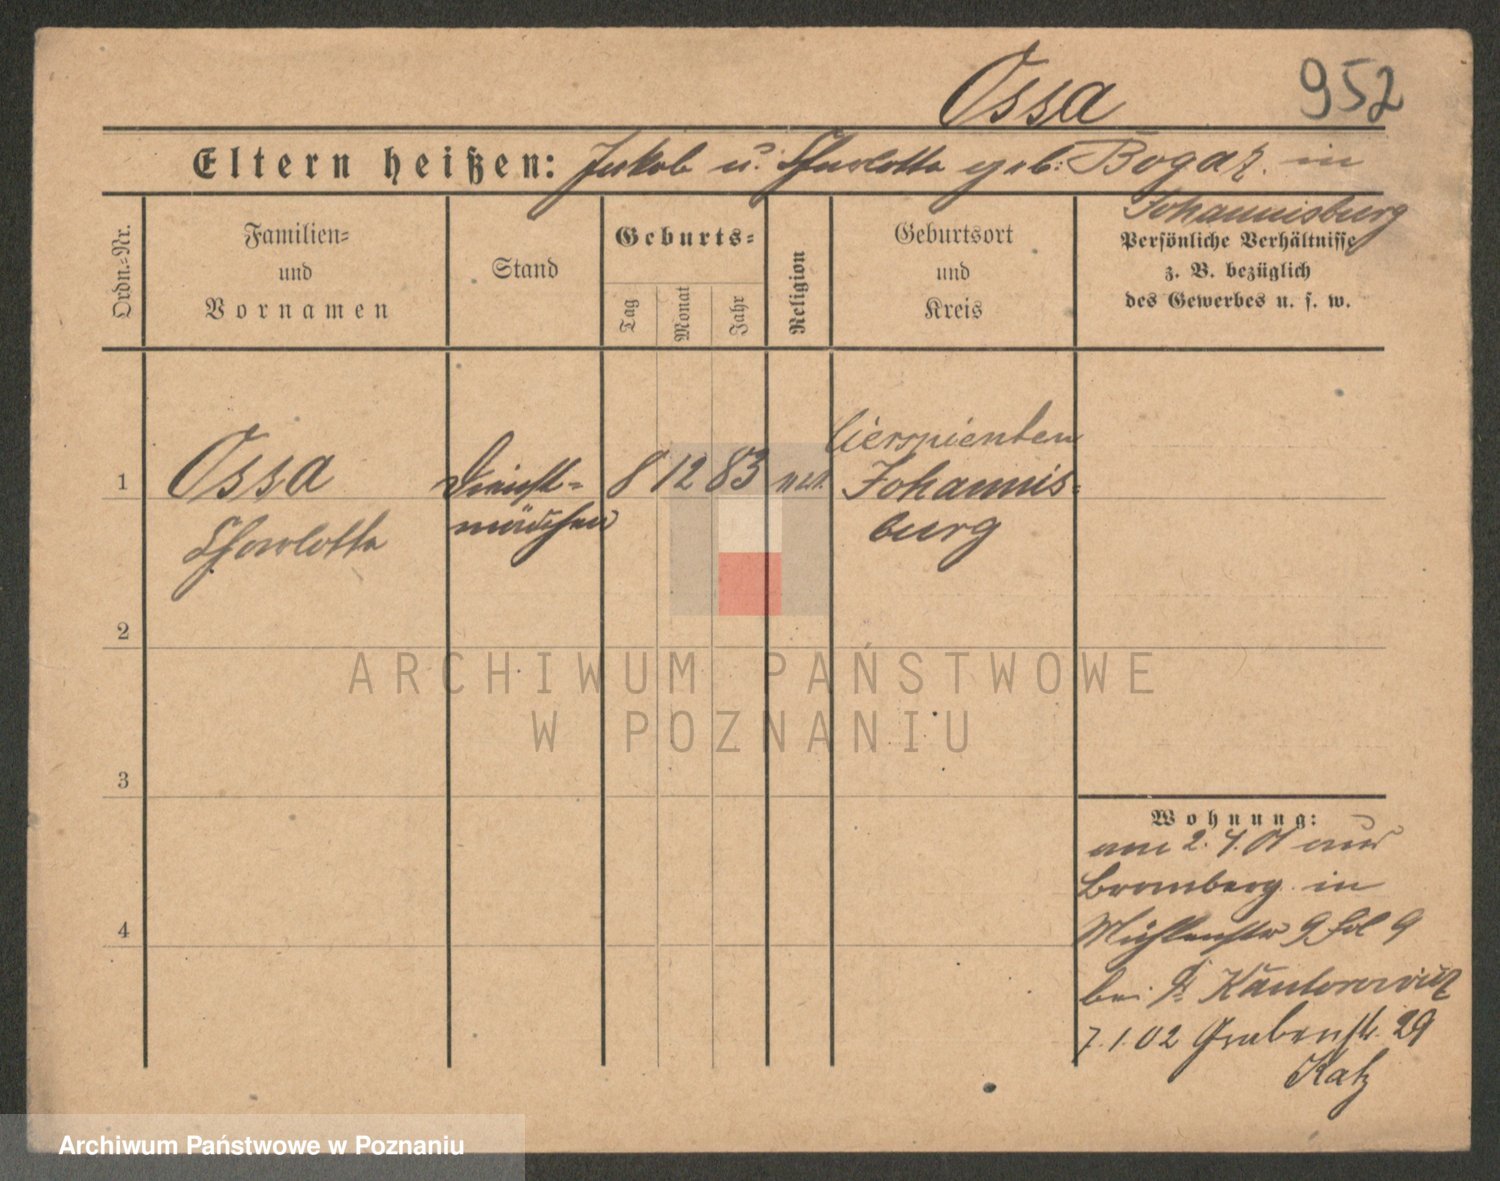 Ossa 952
Eltern heißen: Jakob u. Charlotte geb: Bogaz. in
Johannisburg
Ordn.-Nr.
Familien-
und
Vornamen
Stand
Geburts-
Tag
Monat
Jahr
Religion
Geburtsort
und
Kreis
Persönliche Verhältnisse
z. B. bezüglich
des Gewerbes u. s. w.
1
Ossa
Charlotte
Dienst-
mädchen
8 12 83
Johannis-
burg
2
3
4
Wohnung:
am 2. 4. 01 aus
Bromberg in
Mühlenstr 9
bei Kantorowicz
7. 1. 02 Grabenstr. 29
Katz
ARCHIWUM PAŃSTWOWE
W POZNANIU
Archiwum Państwowe w Poznaniu